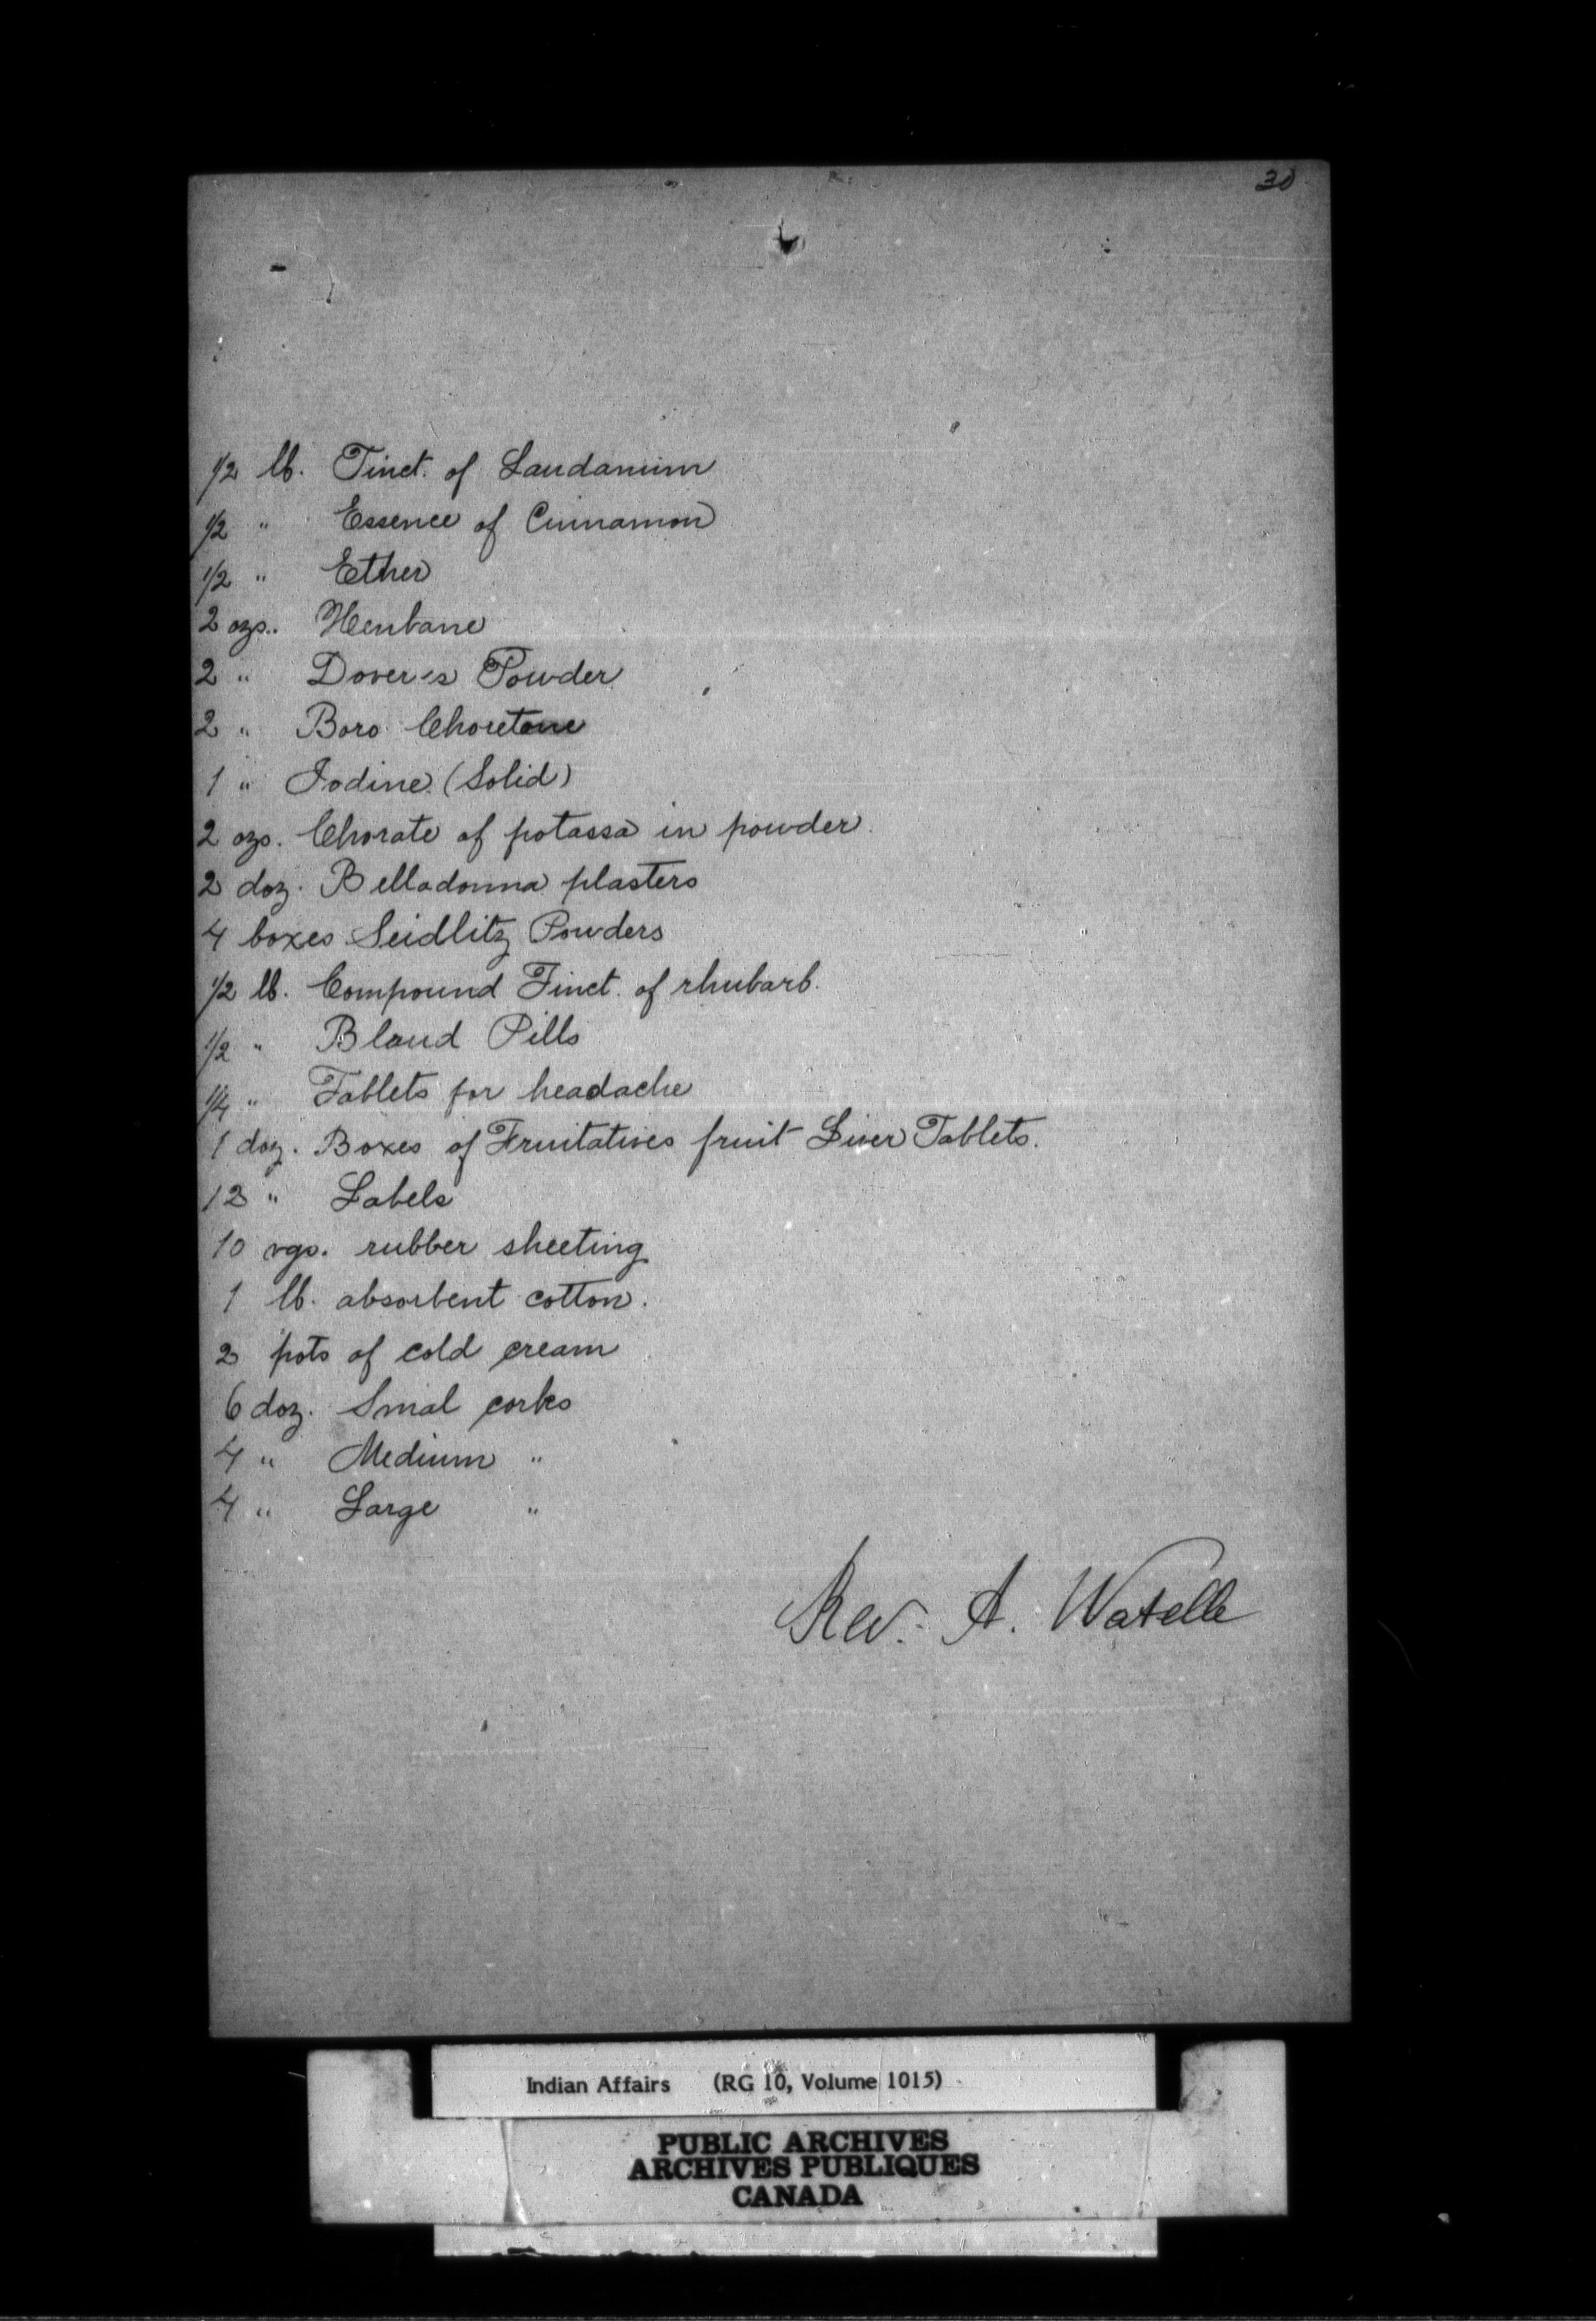 30
1/2 lb. Tinct. of Laudanum
1/2 " Essence of Cinnamon
1/2 " Ether
2 ozs. Henbane
2 " Dover's Powder
2 " Boro Choretone
1 " Iodine (Solid)
2 ozs. Chorate of potassa in powder.
2 doz. Belladonna plasters
4 boxes Seidlitz Powders
1/2 lb. Compound Tinct. of rhubarb.
1/2 " Blaud Pills
1/4 " Tablets for headache
1 doz. Boxes of Fruitatives fruit Liver Tablets.
12 " Labels
10 rubber sheeting
1 lb. absorbent cotton.
2 pots of cold cream
6 doz. Smal corks
4 " Medium "
4 " Large "
Rev. A. Watelle
Indian Affairs (RG 10, Volume 1015)
PUBLIC ARCHIVES
ARCHIVES PUBLIQUES
CANADA